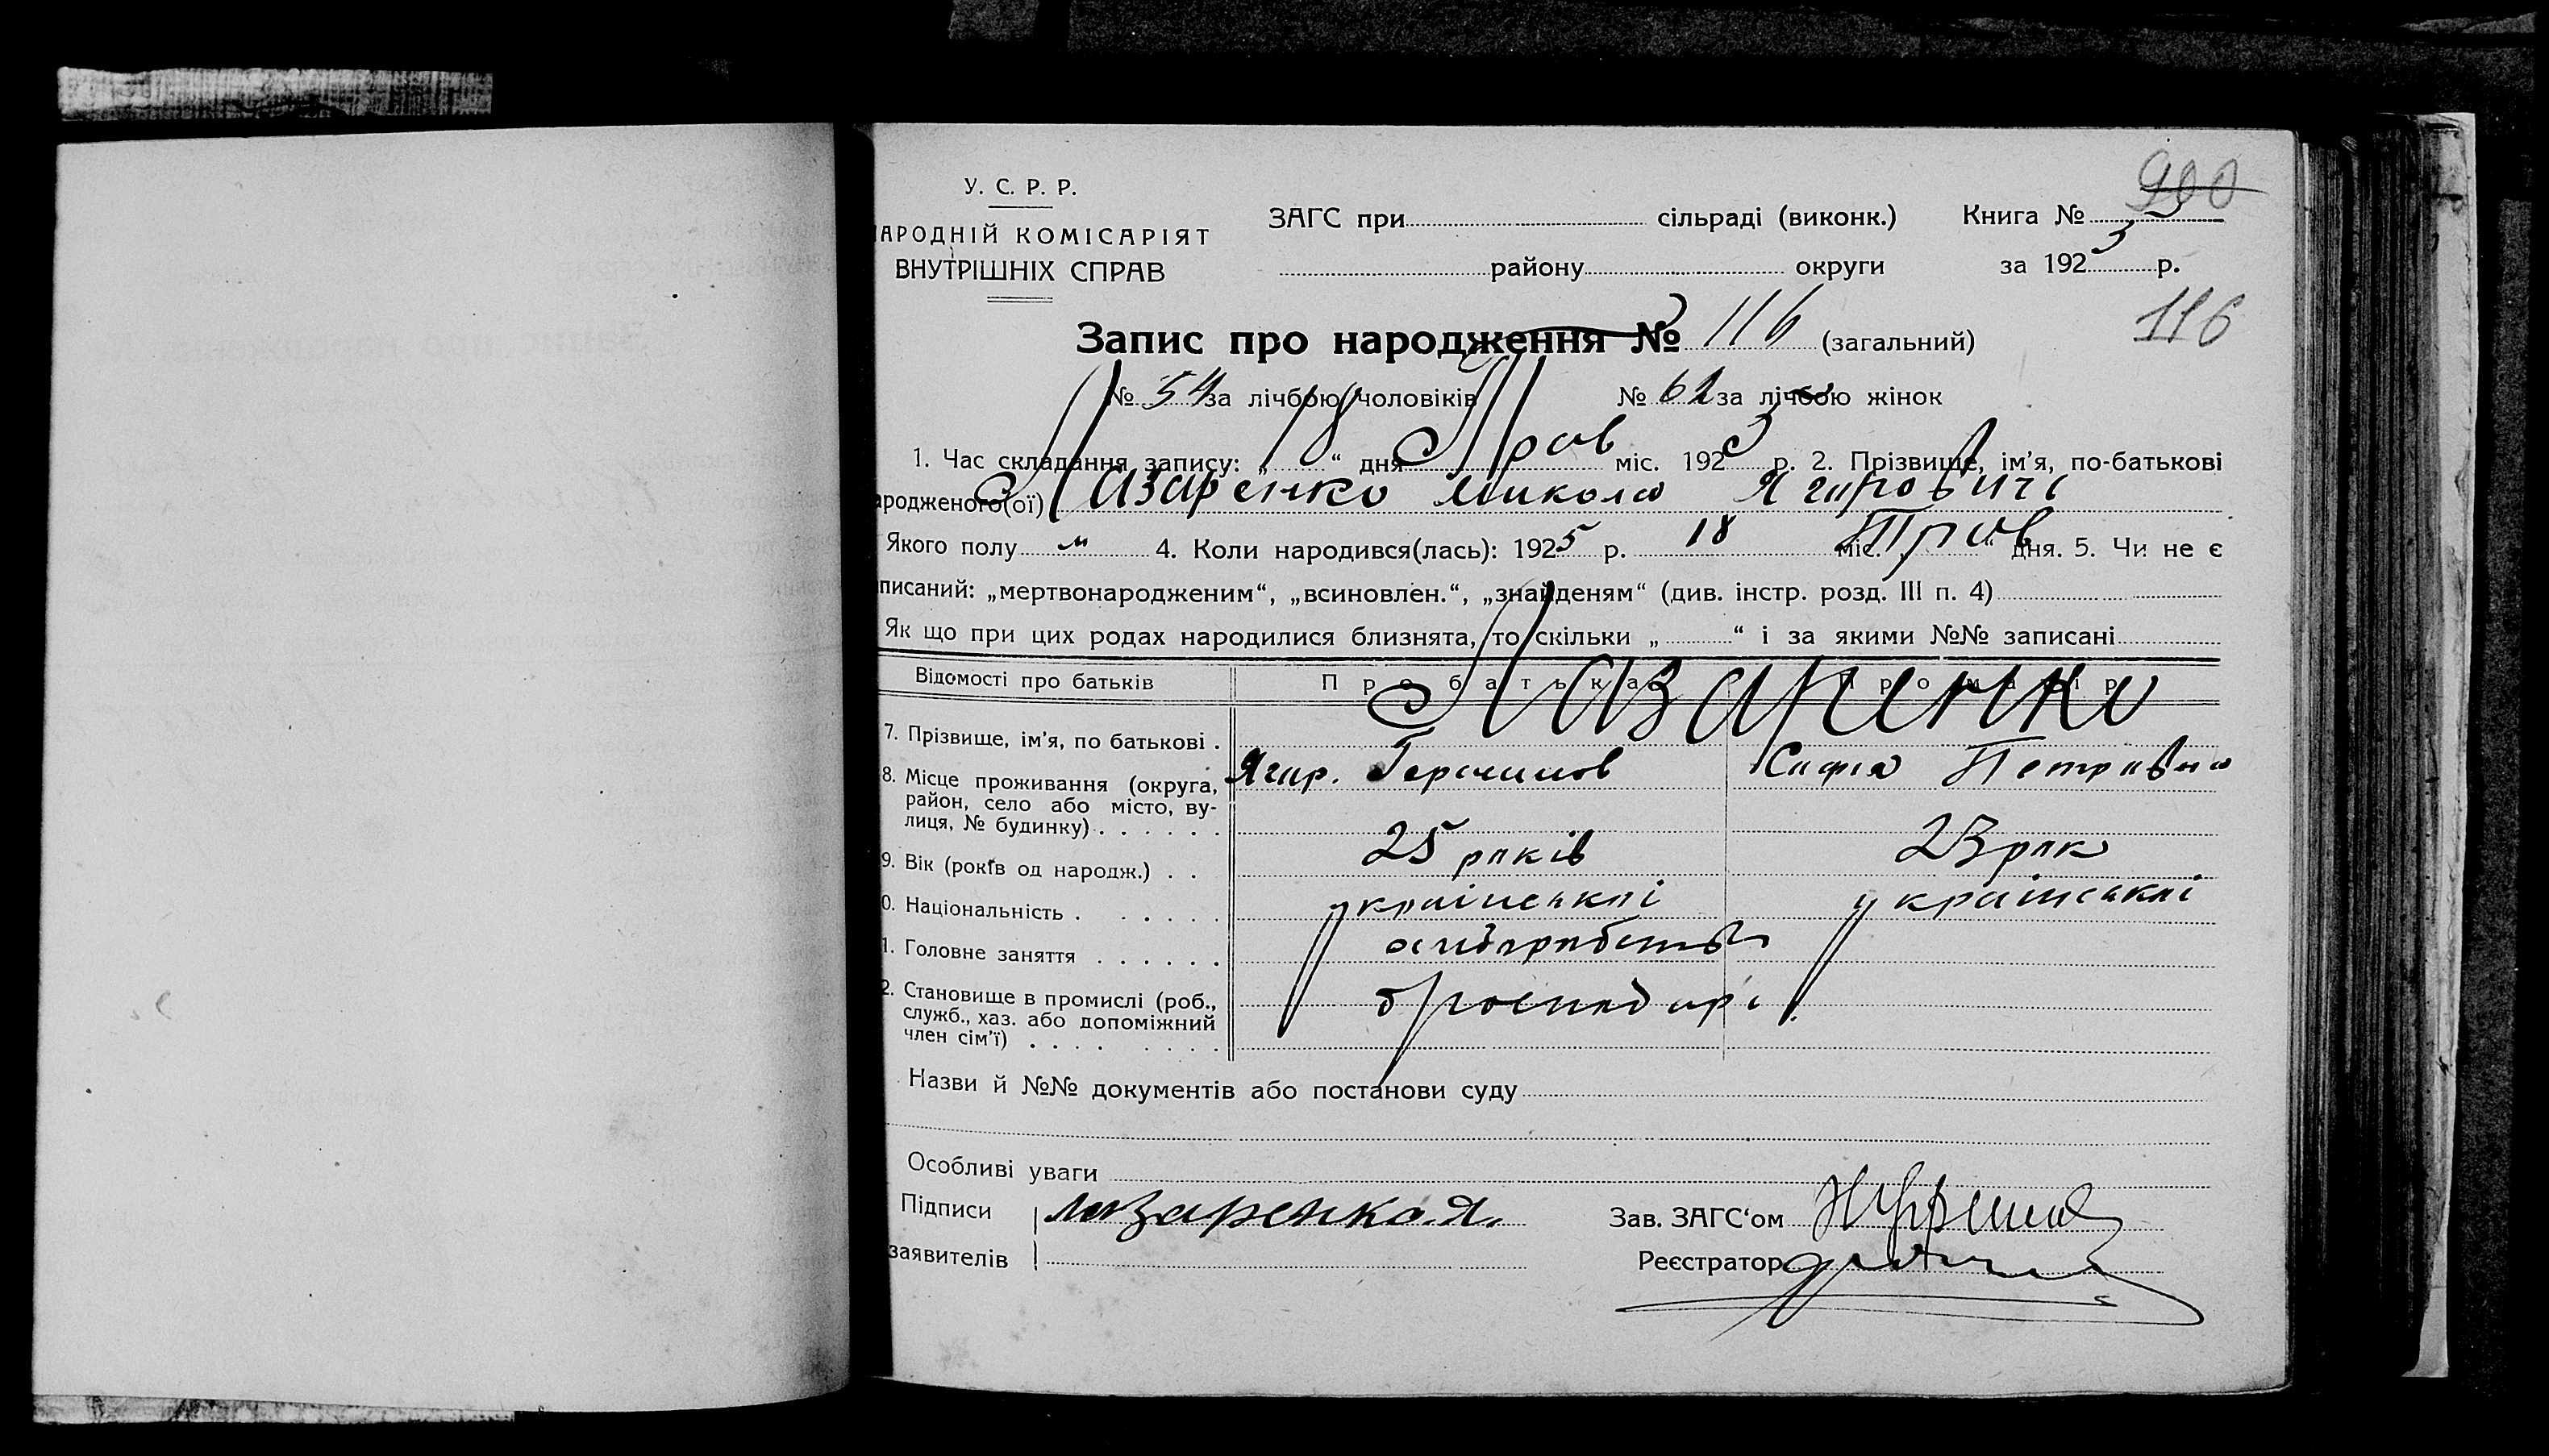 900
У. С. Р. Р.
АРОДНІЙ КОМІСАРІЯТ
ВНУТРІШНІХ СПРАВ
ЗАГС при сільраді (виконк.) Книга №
району округи за 1925 р.
Запис про народження № 116 (загальний)
116
№ 54 за лічбою чоловіків № 62 за лічбою жінок
1. Час складання запису: „18“ дня Трав міс. 1925 р. 2. Прізвище, ім’я, по-батькові
ародженого(ої) Лазаренко Микола Ягировичь
Якого полу м 4. Коли народився(лась): 1925 р. 18 міс. Трав “ дня. 5. Чи не є
писаний: „мертвонародженим“, „всиновлен.“, „знайденям“ (див. інстр. розд. III п. 4)
Як що при цих родах народилися близнята, то скільки „ “ і за якими №№ записані
Відомості про батьків Про батька Про матір
Лазаренко
7. Прізвище, ім’я, по батькові .
Ягир. Герасимов Софія Петровна
8. Місце проживання (округа, район, село або місто, вулиця, № будинку)
9. Вік (років од народж.) . . 25 років 23 рок
0. Національність . українські українські
1. Головне заняття
2. Становище в промислі (роб., служб., хаз. або допоміжний член сім’ї) господарь
Назви й №№ документів або постанови суду
Особливі уваги
Підписи Лазаренко.Я.
заявителів
Зав. ЗАГС‘ом
Реєстратор